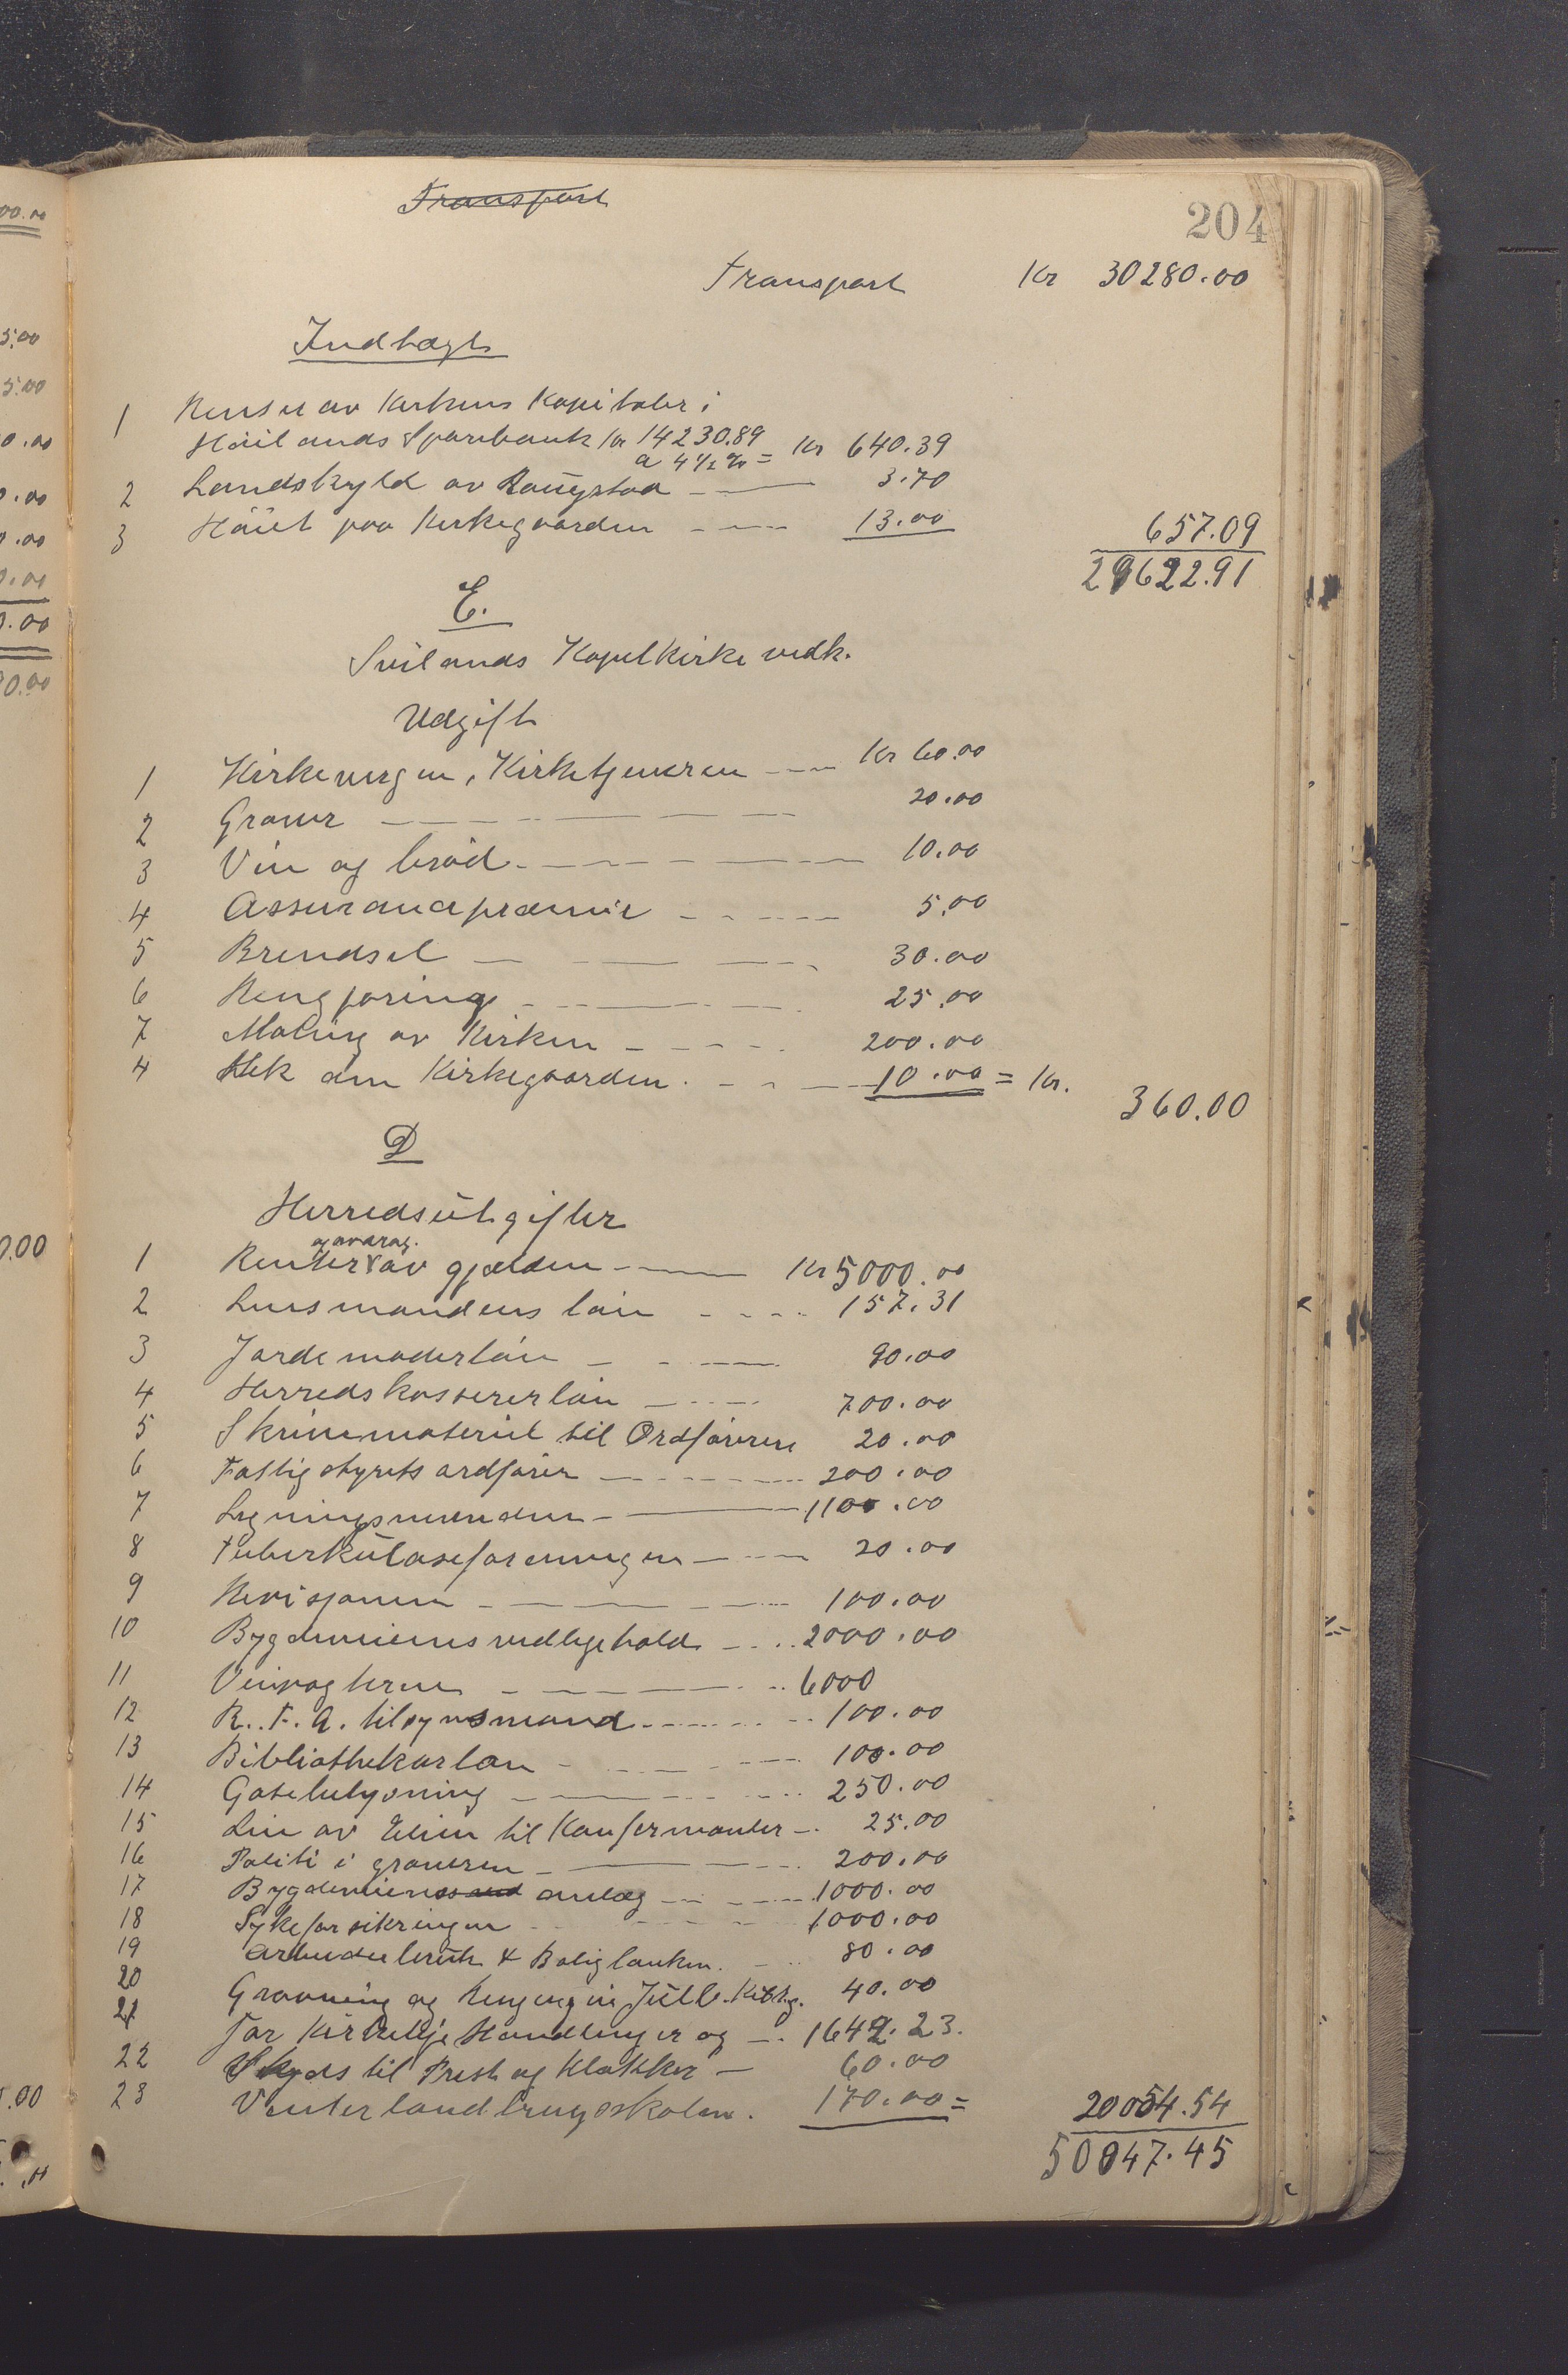 Transport
204
Transport Kr 30280.00
Indtægt
1 Renter av Kirkens Kapitaler i
Höilands Sparebank kr 14230.89
a 4 1/2 % = Kr 640.39
2 Landskyld av Raugstad 3.70
3 Höiet paa Kirkegaarden 13.00
657.09
29622.91
E.
Svilands Kapelkirke vedk.
Udgift
1 Kirkevergen, Kirketjeneren Kr 60.00
2 Graver 20.00
3 Vin og bröd 10.00
4 Assurancepræmie 5.00
5 Brendsel 30.00
6 Rengjöring 25.00
7 Maling av Kirken 200.00
4 Hek om Kirkegaarden 10.00 = Kr.
360.00
D
Herredsutgifter
og avdrag.
1 Renter av gjælden Kr 5000.00
2 Lensmandens lön 157.31
3 Jordemoderlön 90.00
4 Herredskassererlön 700.00
5 Skrivemateriel til Ordföreren 20.00
6 Fattigstyrets ordförer 200.00
7 Ligningsmænden 1100.00
8 Tuberkuloseforeningen 20.00
9 Revisjonen 100.00
10 Bygdeveienes vedligehold 2000.00
11 Veivogterne 6000
12 R.T.A. tilsynsmand 100.00
13 Bibliothekarlön 100.00
14 Gatebelysning 250.00
15 Leie av til Konfermanter 25.00
16 Politi i graveren 200.00
17 Bygdeveienes ved anlæg 1000.00
18 Sykeforsikringen 1000.00
19 Arbeiderbruk & Boligbanken. 80.00
20 Gravning og Ringing in Jul 40.00
21 For Kirkelige Handlinger og 1642.23.
22 Skyds til Prest og Klokker 60.00
23 Vinterlandbrugsskolen. 170.00 =
20054.54
50047.45